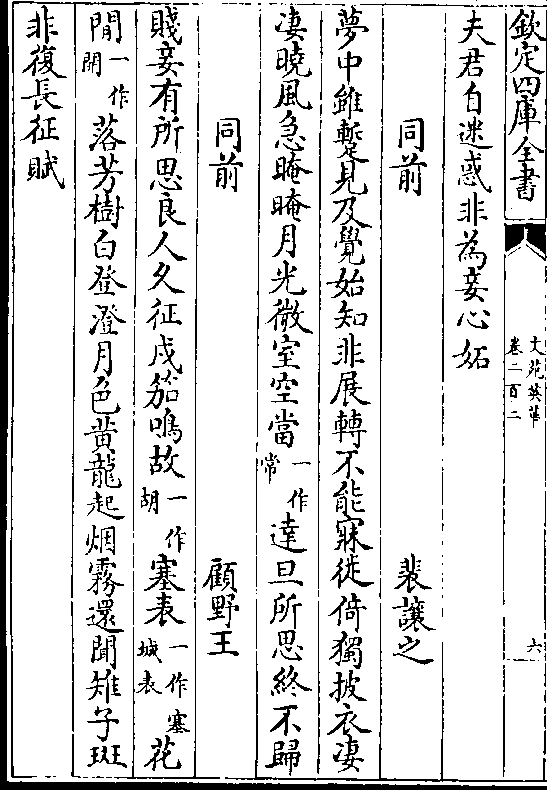 欽定四庫全書
文苑英華
卷二百二
六
夫君自迷惑非為妾心妬
同前 裴讓之
夢中雖蹔見及覺始知非展轉不能寐徙倚獨披衣凄
凄曉風急晻晻月光微室空當一作常達旦所思終不歸
同前 顧野王
賤妾有所思良人久征戍笳鳴故一作胡塞表一作塞城表花
開一作開落芳樹白登澄月色黄龍起烟霧還聞雉子斑
非復長征賦